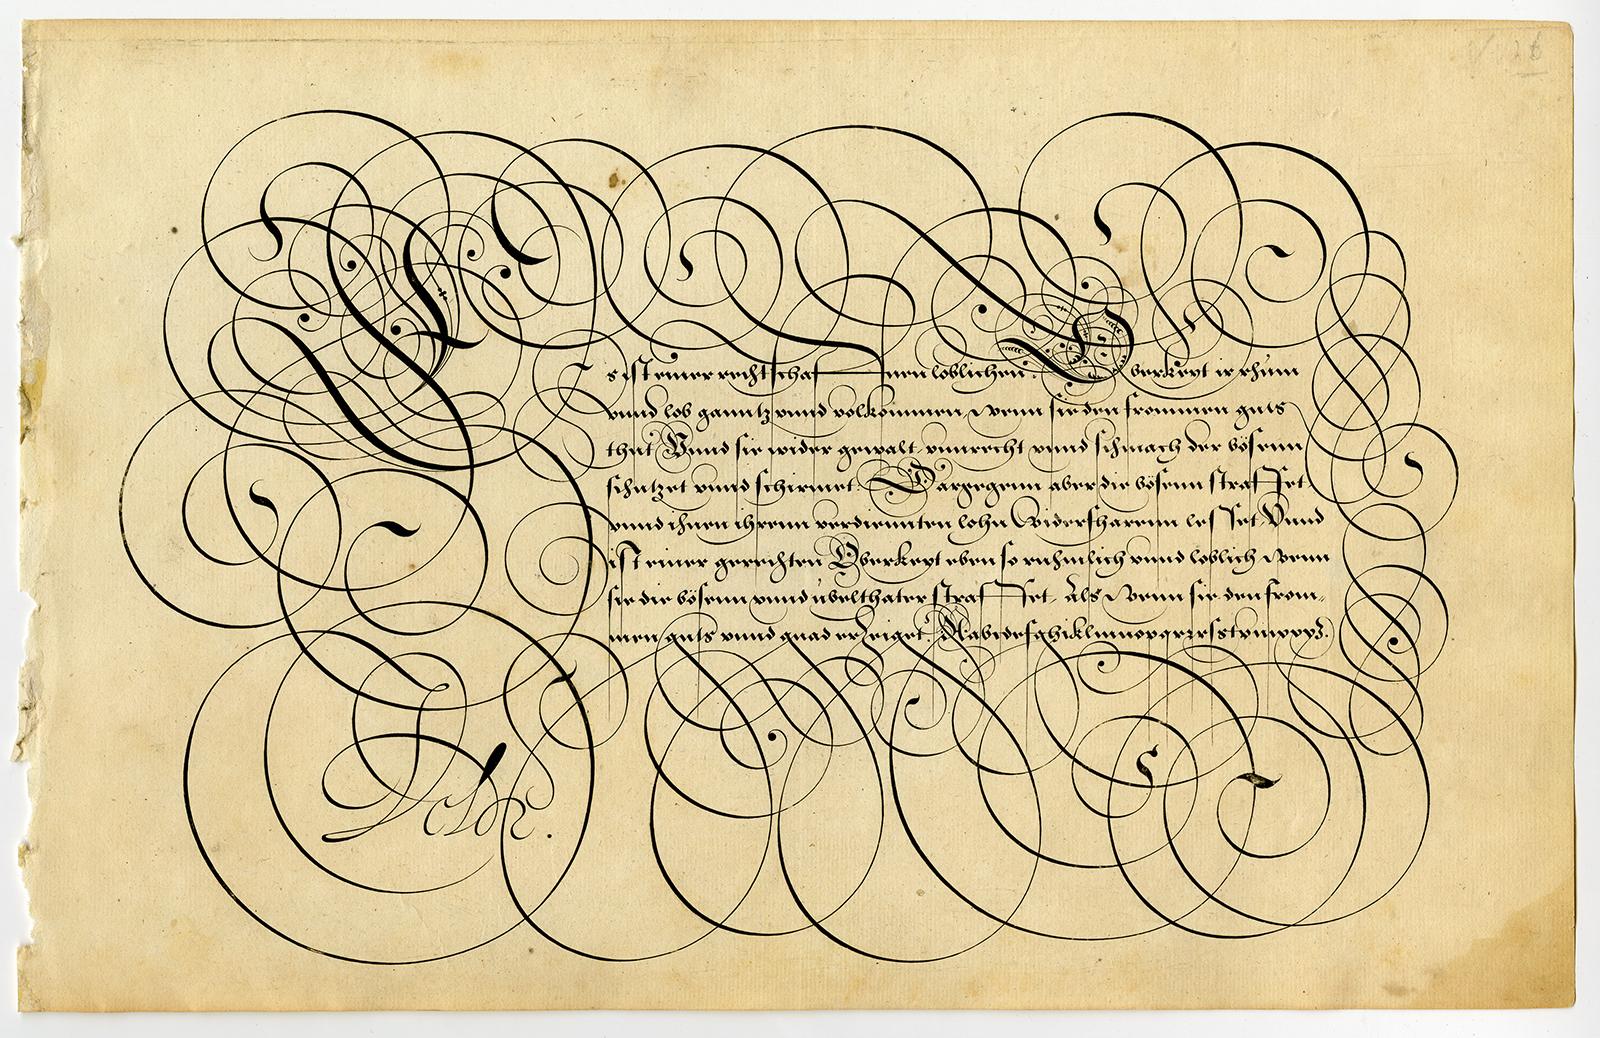 Es ist einer rechtschaffnen loblichen Oberkeyt ir rhum
vnnd lob ganntz vnnd volkommen, Wenn sie den frommen guts
thut Vnnd sie wider gewalt vnnrecht vnnd schmach der bösenn
schützet vnnd schirmet. Dargegenn aber die bösenn straffet
vnnd ihnen ihrenn verdiennten lohn Widerfharenn lesset, Vnnd
ist einer gerechten Oberkeyt eben so ruhmlich vnnd loblich Wenn
sie die bösenn vnnd übelthater straffet, Als Wenn sie den from=
men guts vnnd gnad erzeiget. Aabcdefghiklmnopqrzrsstvuwxyz.